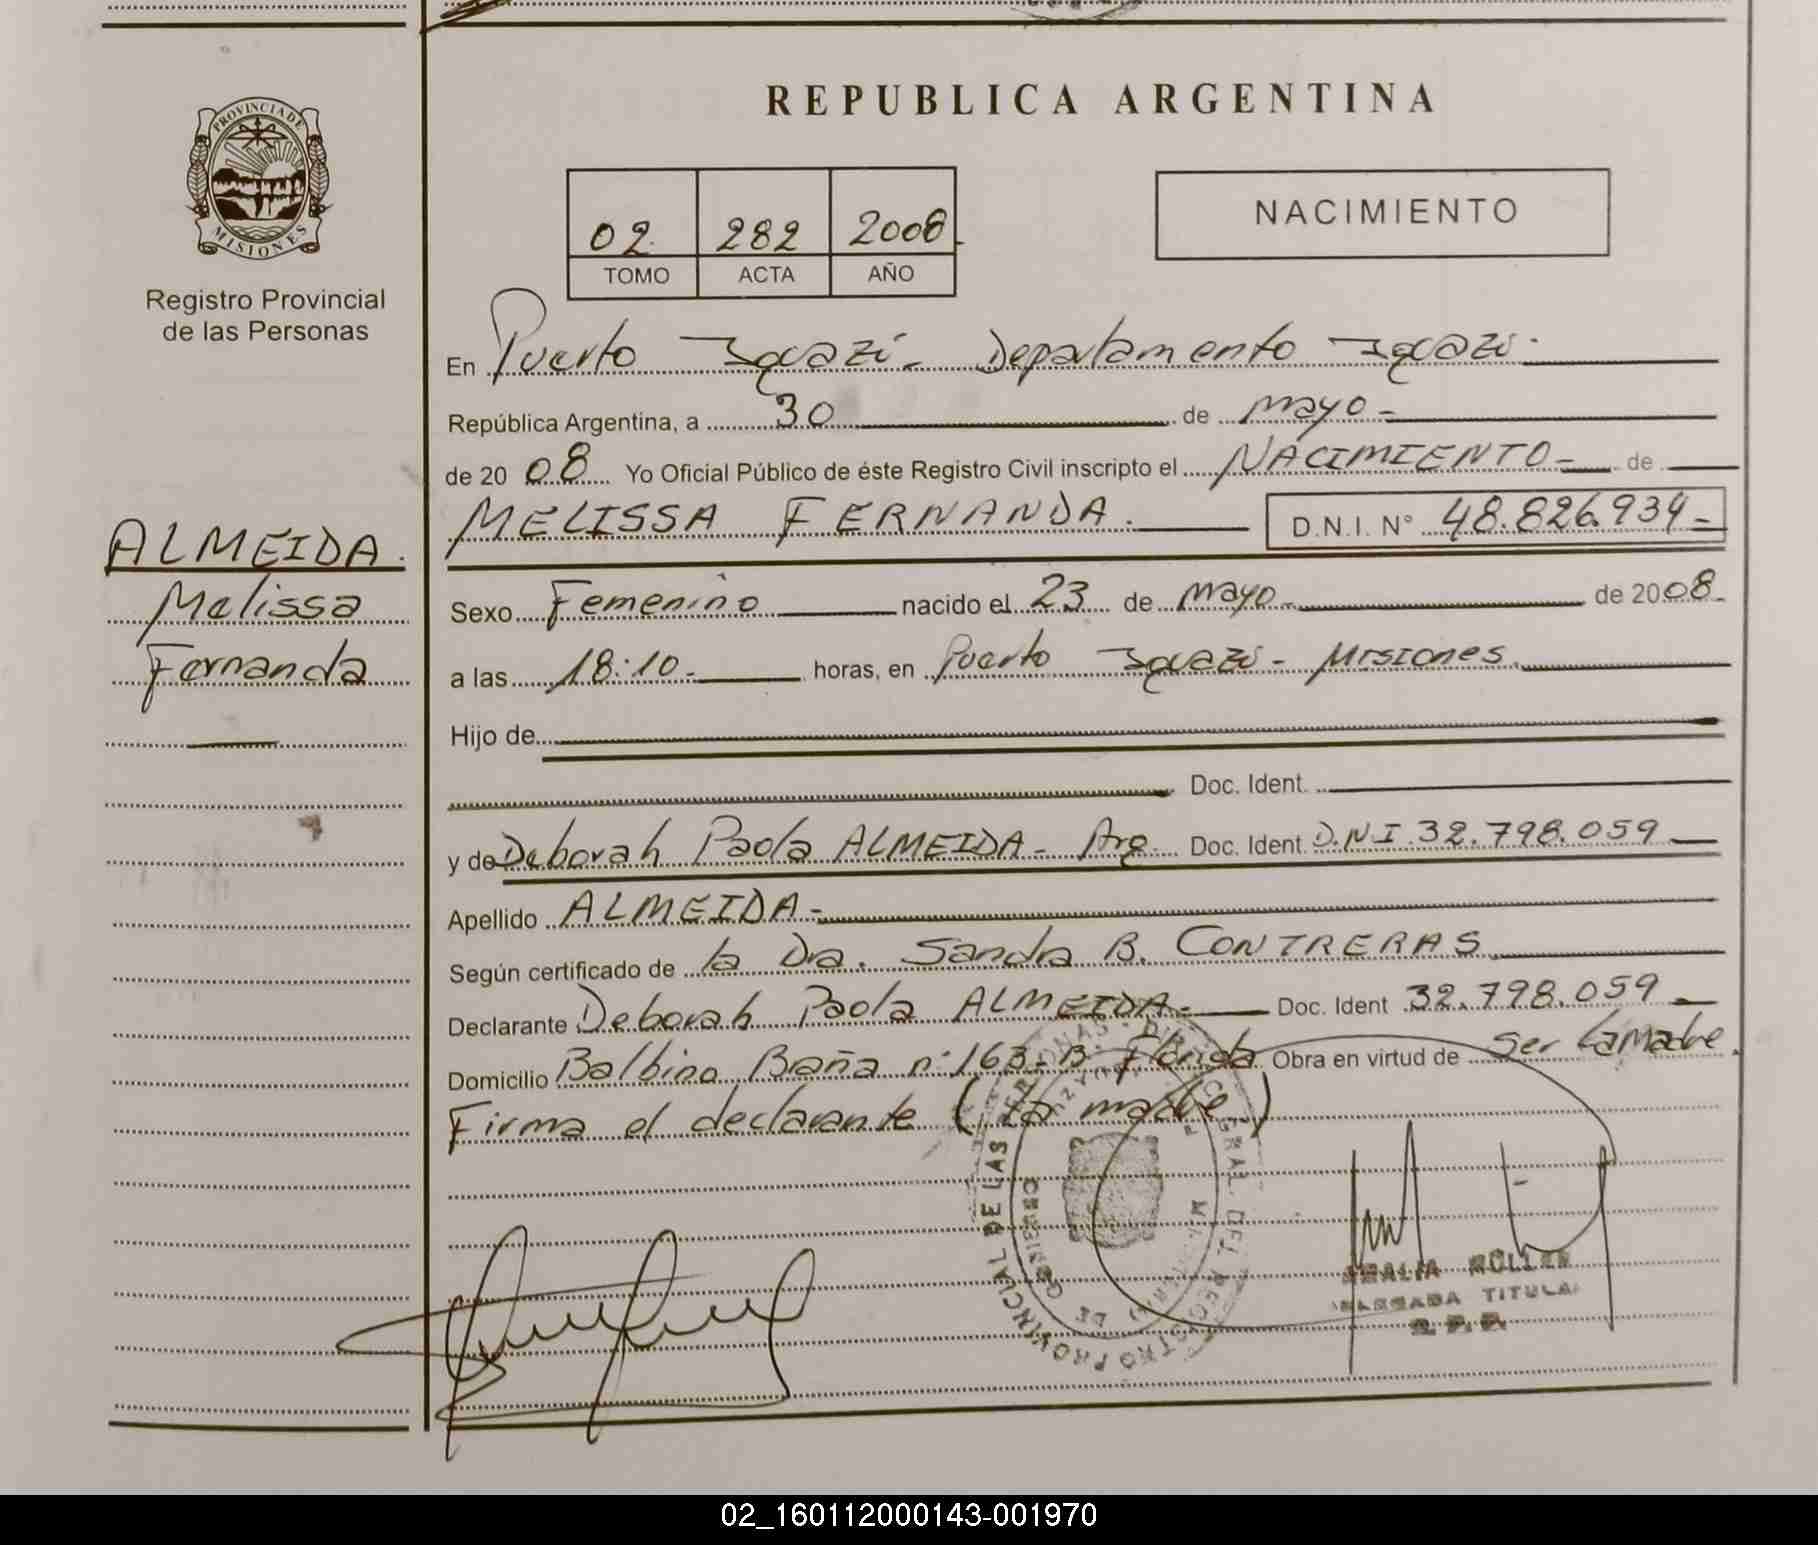 REPUBLICA ARGENTINA
PROVINCIA DE
MISIONES
Registro Provincial
de las Personas
02 282 2008
TOMO ACTA AÑO
NACIMIENTO
En Puerto Iguazú - Departamento Iguazú
República Argentina, a 30 de mayo -
de 20 08 Yo Oficial Público de éste Registro Civil inscripto el NACIMIENTO - de
MELISSA FERNANDA. D.N.I. N° 48.826.934 -
ALMEIDA.
Melissa
Fernanda
Sexo Femenino nacido el 23 de mayo - de 2008.
a las 18:10 - horas, en Puerto Iguazú - Misiones
Hijo de
Doc. Ident.
y de Deborah Paola ALMEIDA - Arg. Doc. Ident. D.N.I. 32.798.059
Apellido ALMEIDA -
Según certificado de la Dra. Sandra B. CONTRERAS
Declarante Deborah Paola ALMEIDA - Doc. Ident 32.798.059
Domicilio Balbino Braña n: 163 - B. Florida Obra en virtud de Ser La Madre.
Firma el declarante (La madre)
TITULAR
02_160112000143-001970